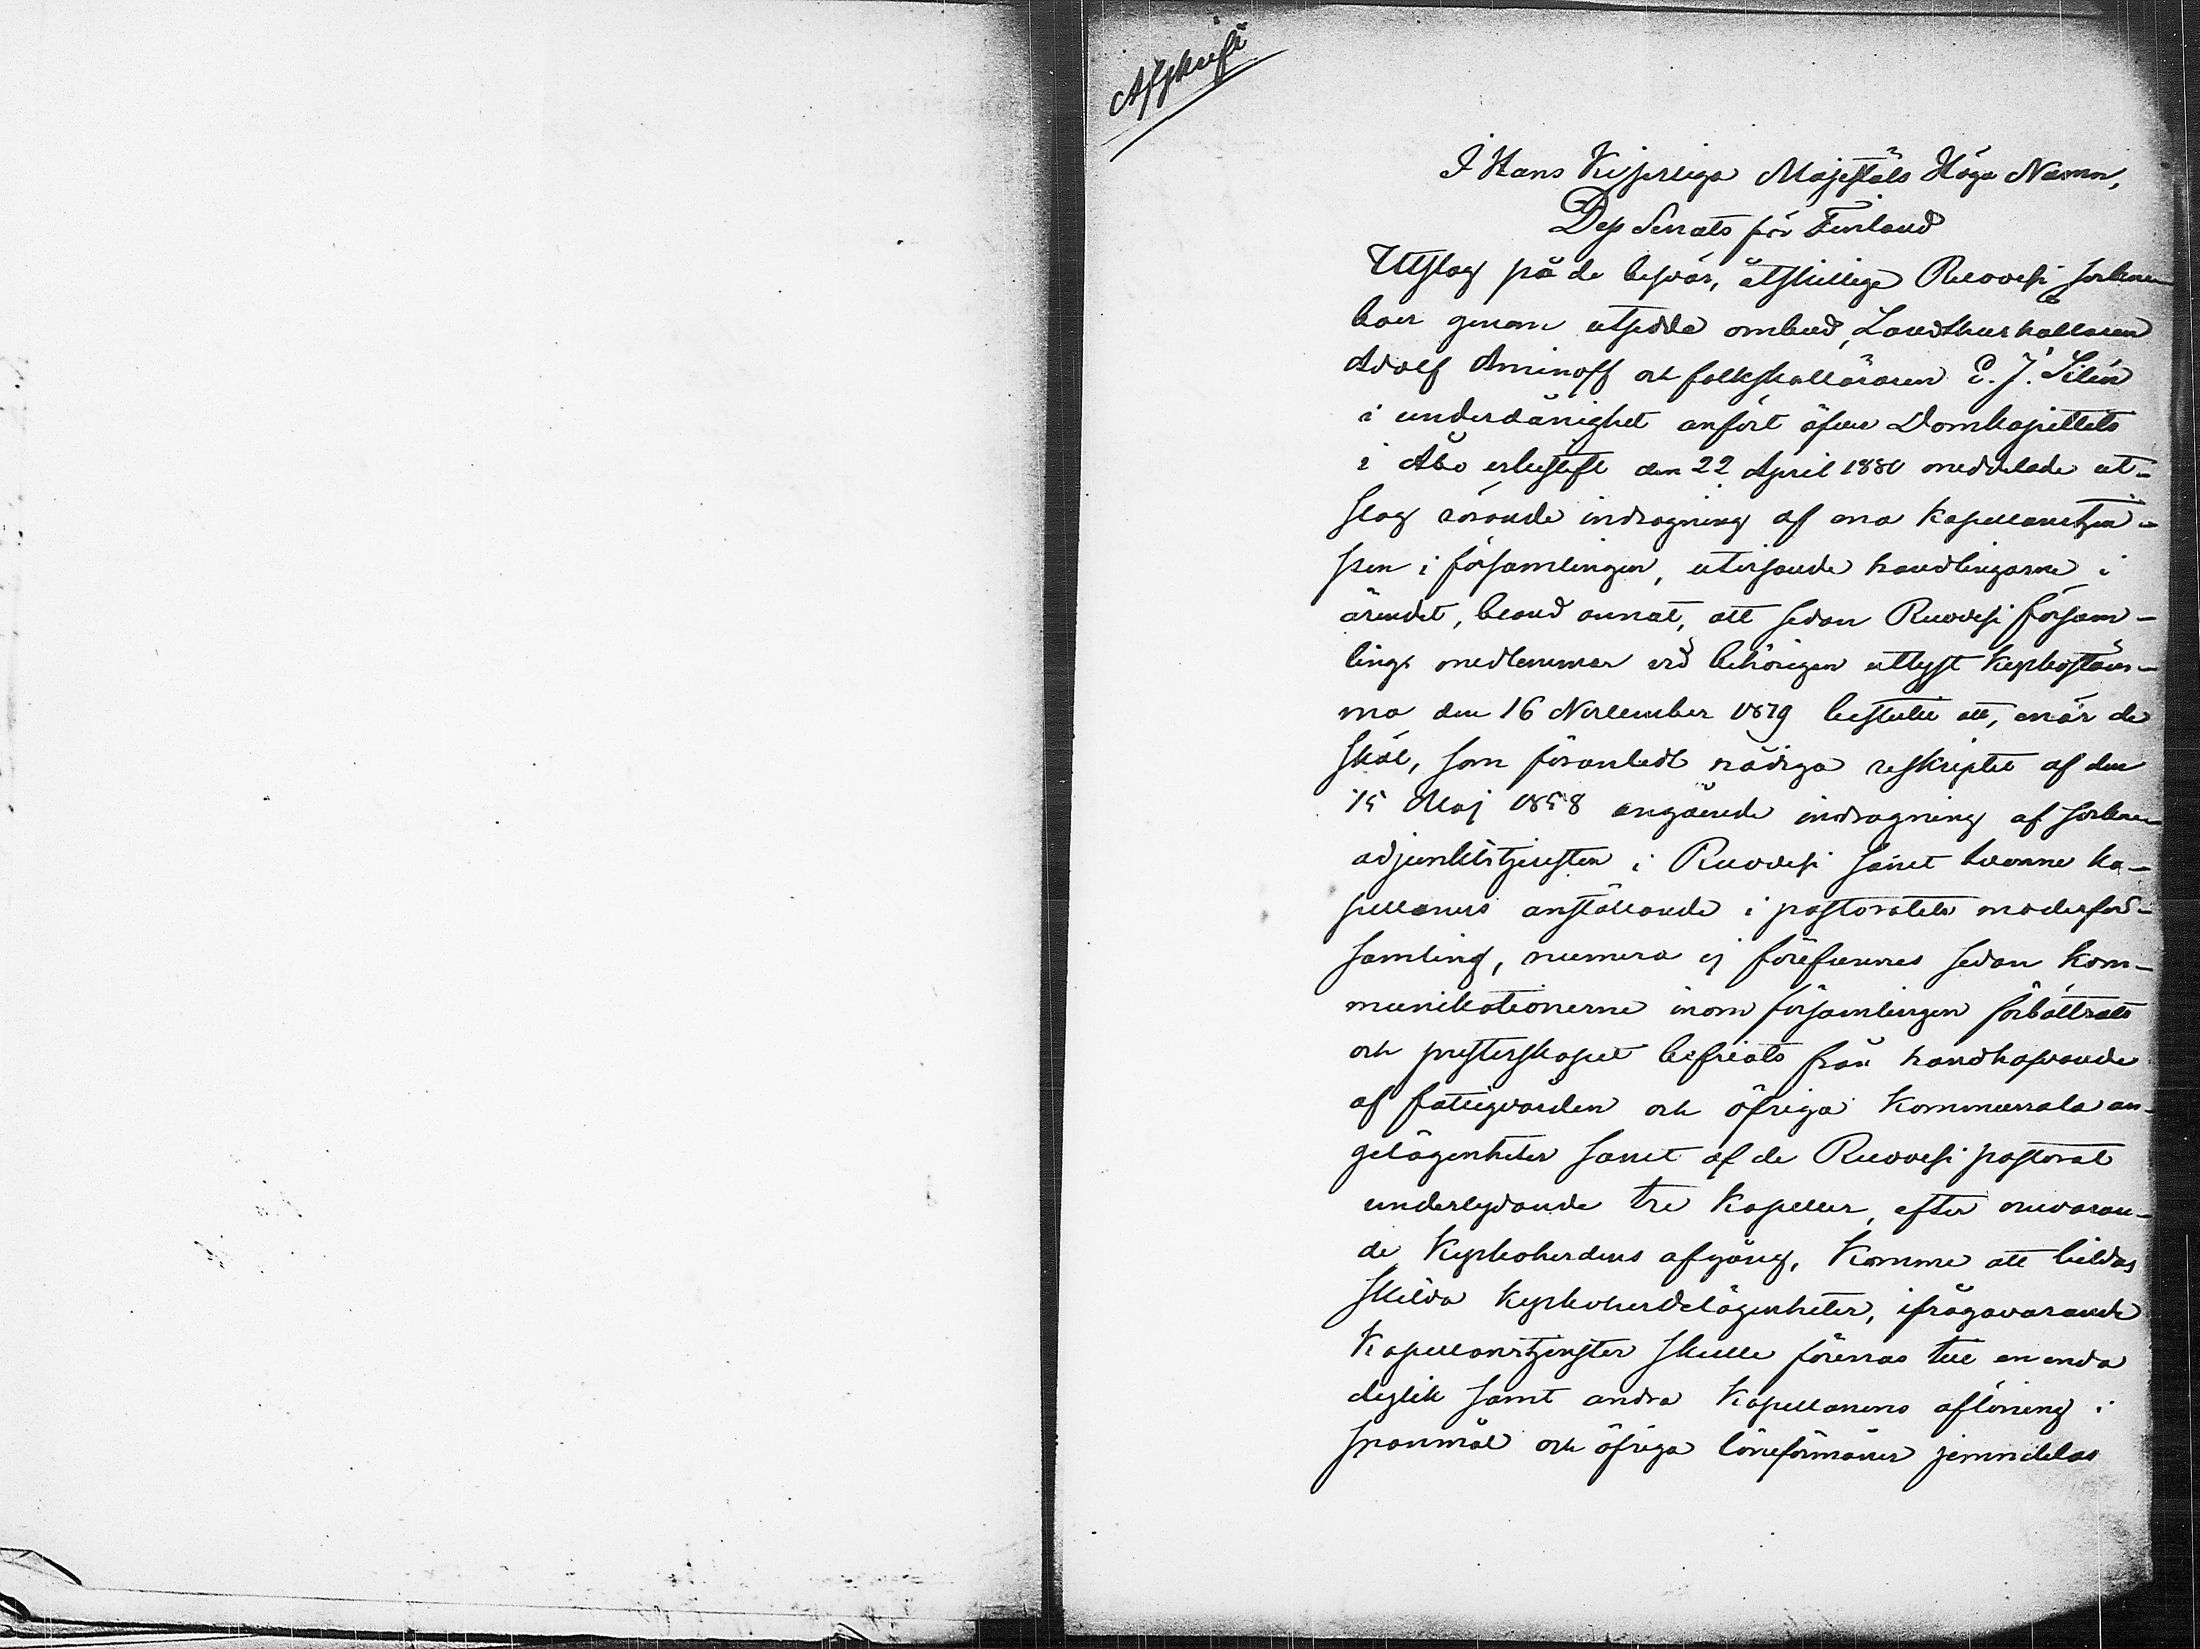 Afskrift
I Hans Kejserliga Majestäts Höga Namn,
Dess Senats för Finland
Utslag på de besvär, åtskillige Ruovesi socknebo-
boer genom utsedde ombud, Landthushållaren
Adolf Aminoff och folkskolläraren E. J. Silén
i underdånighet anfört öfver Domkapitlets
i Åbo erkestift den 22 April 1880 meddelade ut-
slag rörande indragning af ena kapellanstjen-
sten i församlingen, utvisande handlingarne i
ärendet, bland annat, att sedan Ruovesi försam-
lings medlemmar vid behörigen utlyst kyrkostäm-
ma den 16 November 1879 beslutit att, enär de
skäl, som föranledt nådiga reskriptet af den
15 Maj 1858 angående indragning af sockne-
adjunktstjensten i Ruovesi samt tvenne ka-
pellaners anställande i pastoratets moderför-
samling, numera ej förefunnes sedan kom-
munikationerne inom församlingen förbättrats
och presterskapet befriats från handhafvande
af fattigvården och öfriga kommunala an-
gelägenheter samt af de Ruovesi pastorat
underlydande tre kapeller, efter nuvaran-
de kyrkoherdens afgång, komme att bildas
skilda kyrkoherdelägenheter, ifrågavarande
kapellanstjenster skulle förenas till en enda
dylik samt andra kapellanens aflöning i
spanmål och öfriga löneförmåner jemndelas